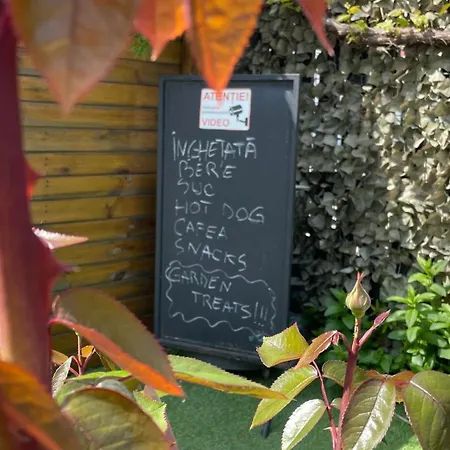 ATENȚIE!
VIDEO
ÎNGHEȚATĂ
BERE
SUC
HOT DOG
CAFEA
SNACKS
GARDEN
TREATS!!!